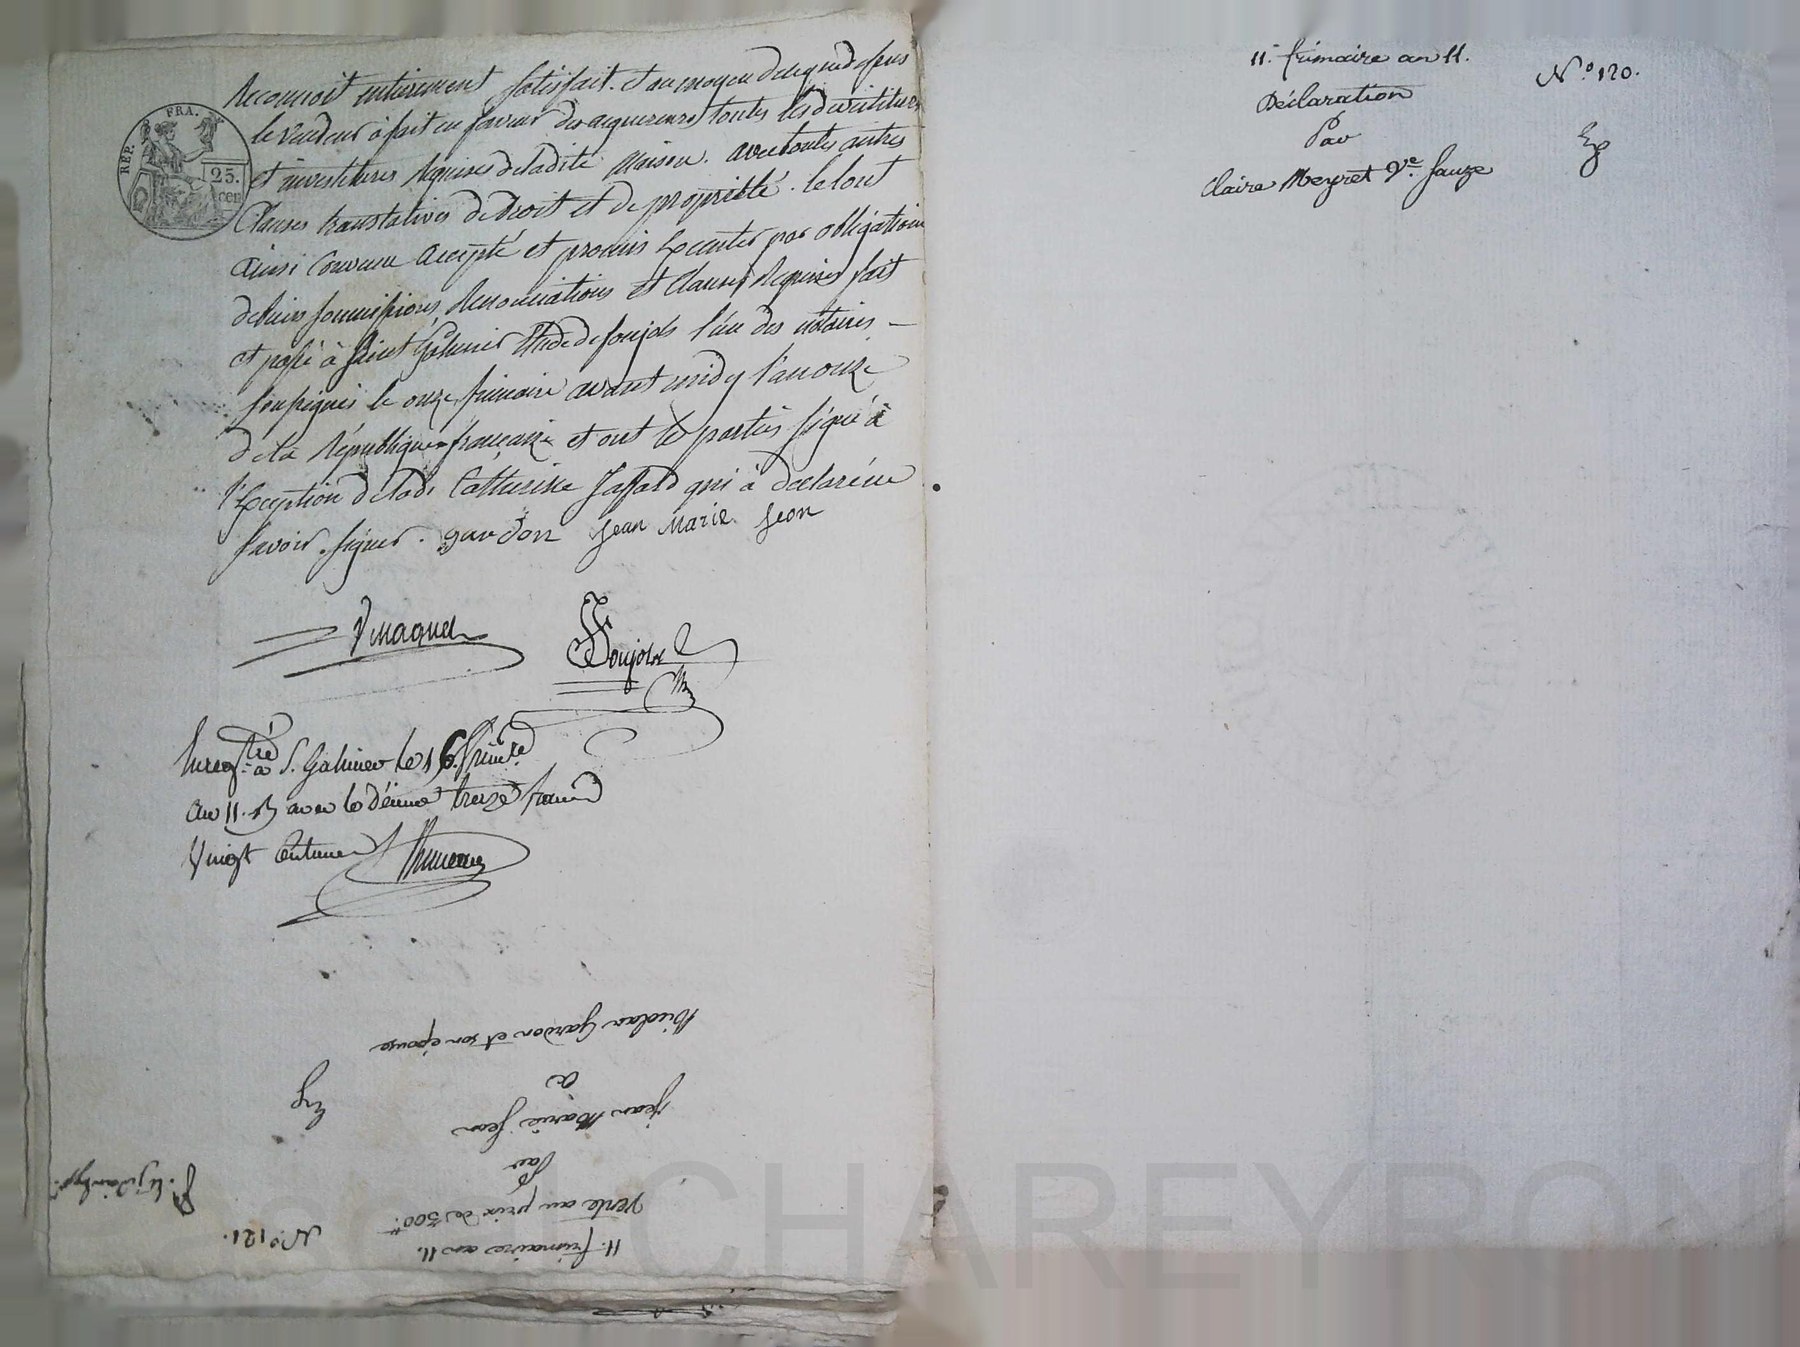 REP. FRA.
25.
cen
Reconnoit entierement satisfait. et au moyen de ce que dessus
le vendeur à fait en faveur des acquereurs toutes les devetitures
et investitures requises de ladite Maison. avec toutes autres
Clauses translatives de droit et de proprieté. le tout
Ainsi Convenu accepté et promis Executer par obligation
de biens soumissions, Renonciations et Clauses Requises fait
et passé à Saint Galmier Etude de soujols l'un des notaires
soussignés le onze frimaire avant midy l'an onze
de la République française et ont les parties signé à
l'Exception de lade Catherine Jassard qui à declaré ne
savoir signer. gardon Jean Marie Jeon
Soujols
Enregtré à S. Galmier le 16. frimre
an 11. avec le Décime treize francs
Vingt Centimes
11. frimaire an 11.
N.o 121.
Vente au prix de 300.
Par
jean Marie Jeon
a
Nicolas Gardon et son épouse
11. frimaire an 11.
N.o 120.
Déclaration
Par
Claire Meyret Ve. Sauze
CHAREYRON